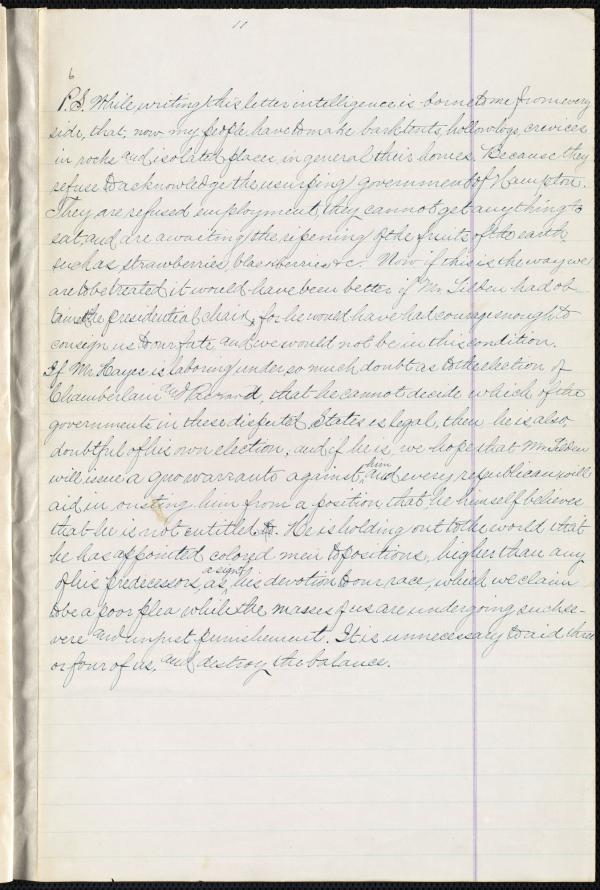 11
6
P.S. While writing this letter intelligence is borne to me from every
side, that, now my people have to make bark tents, hollow logs, crevices
in rocks and isolated places in general their homes. Because they
refuse to acknowledge the usurping government of Hampton.
They are refused employment, they cannot get anything to
eat, and are awaiting the ripening of the fruits of the earth
such as strawberries, blackberries &c. Now if this is the way we
are to be treated it would have been better if Mr. Tilden had ob
tained the presidential chair, for he would have had courage enough to
consign us to our fate, and we would not be in this condition.
If Mr. Hayes is laboring under so much doubt as to the election of
Chamberlain and Packard, that he cannot decide which of the
governments in these disputed States is legal, then he is also,
doubtful of his own election, and if he is, we hope that Mr. Tilden
will issue a quo warranto against, him and every republican will
aid in ousting him from a position, that he himself believes
that he is not entitled to. He is holding out to the world that
he has appointed colored men to positions, higher than any
of his predecessors, as a sign of his devotion to our race, which we claim
to be a poor plea while the masses of us are undergoing such se-
vere and unjust punishement. It is unnecessary to aid three
or four of us, and destroy the balance.